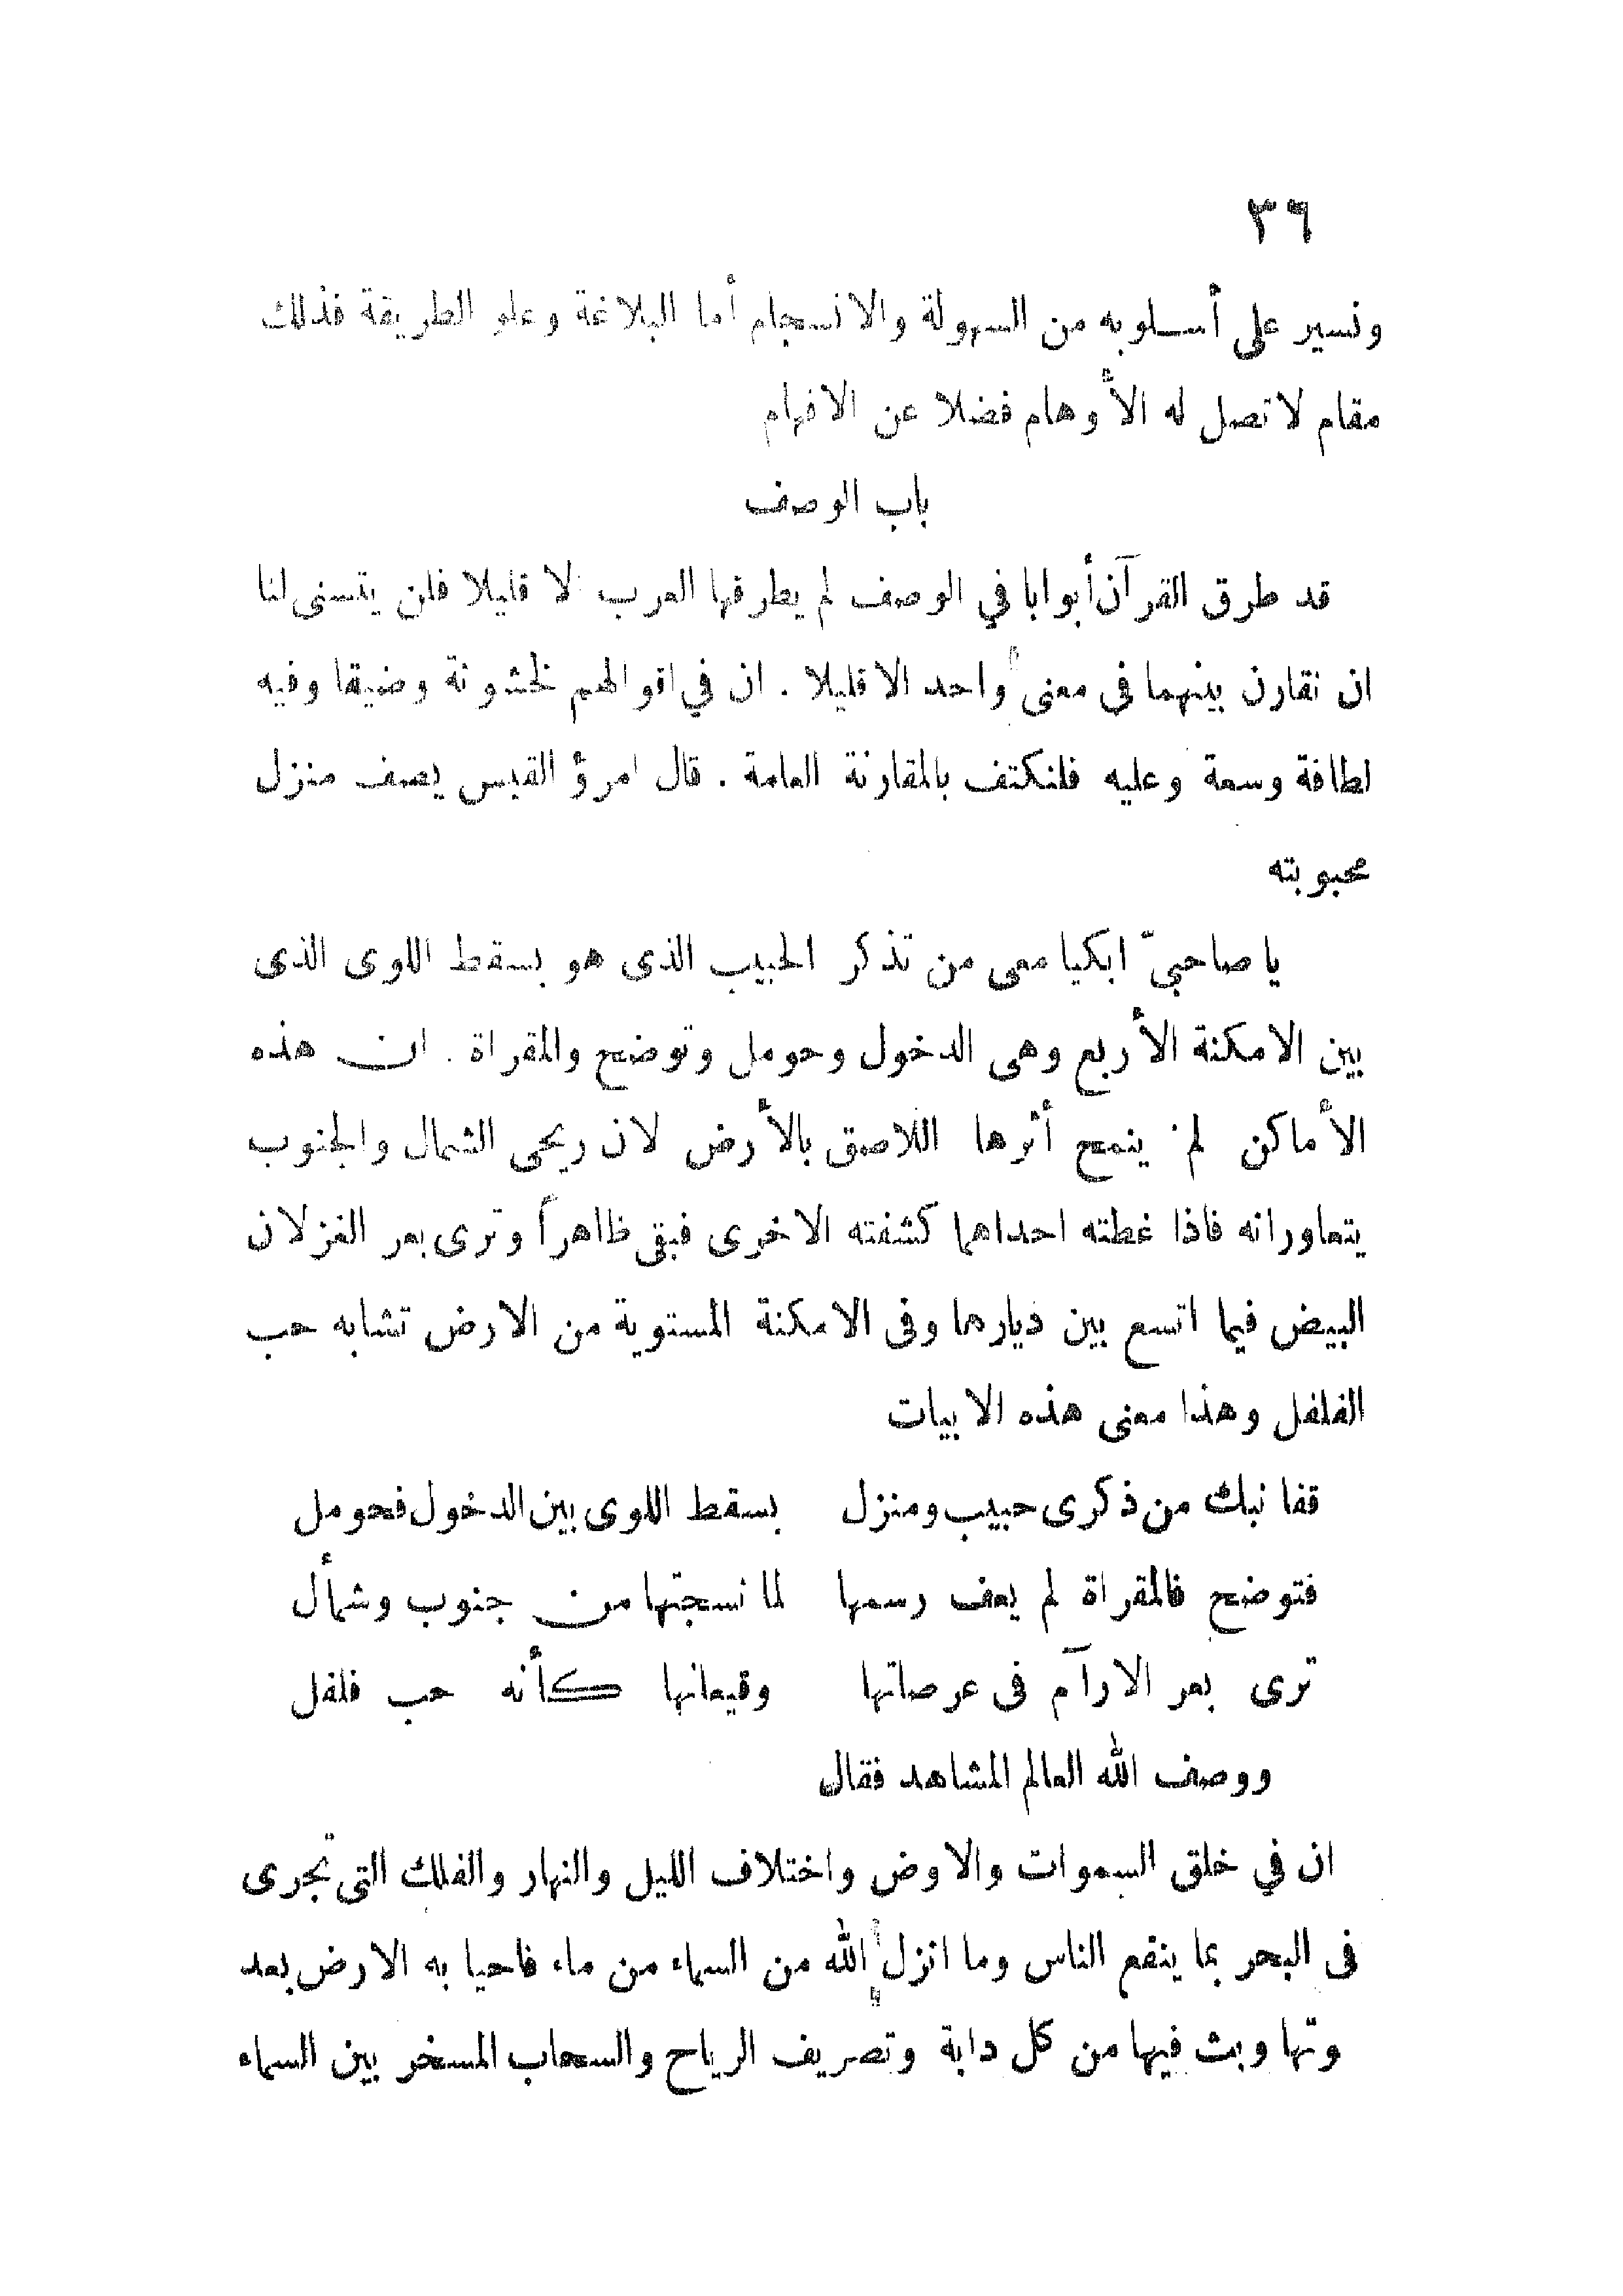 ٣٦
ونسير على أسلوبه من السهولة والانسجام أما البلاغة وعلو الطريقة فذلك
مقام لا تصل له الأوهام فضلا عن الافهام
باب الوصف
قد طرق القرآن أبوابا في الوصف لم يطرقها العرب الا قليلا فلن يتسنى لنا
ان نقارن بينهما فى معنى واحد الا قليلا . ان في اقوالهم لخشونة وضيقا وفيه
لطافة وسعة وعليه فلنكتف بالمقارنة العامة . قال امرؤ القيس يصف منزل
محبوبته
يا صاحبيّ ابكيا معى من تذكر الحبيب الذى هو بسقط اللوى الذى
بين الامكنة الأربع وهى الدخول وحومل وتوضح والمقراة . ان هذه
الأماكن لم ينمح أثرها اللاصق بالأرض لان ريحى الشمال والجنوب
يتعاورانه فاذا غطته احداهما كشفته الاخرى فبقى ظاهراً وترى بعر الغزلان
البيض فيما اتسع بين ديارها وفى الامكنة المستوية من الارض تشابه حب
الفلفل وهذا معنى هذه الابيات
قفا نبك من ذكرى حبيب ومنزل بسقط اللوى بين الدخول فحومل
فتوضح فالمقراة لم يعف رسمها لما نسجتها من جنوب وشمأل
ترى بعر الارآم فى عرصاتها وقيعانها كأنه حب فلفل
ووصف الله العالم المشاهد فقال
ان في خلق السموات والاوض واختلاف الليل والنهار والفلك التى تجرى
فى البحر بما ينفع الناس وما انزل الله من السماء من ماء فاحيا به الارض بعد
وتها وبث فيها من كل دابة وتصريف الرياح والسحاب المسخر بين السماء